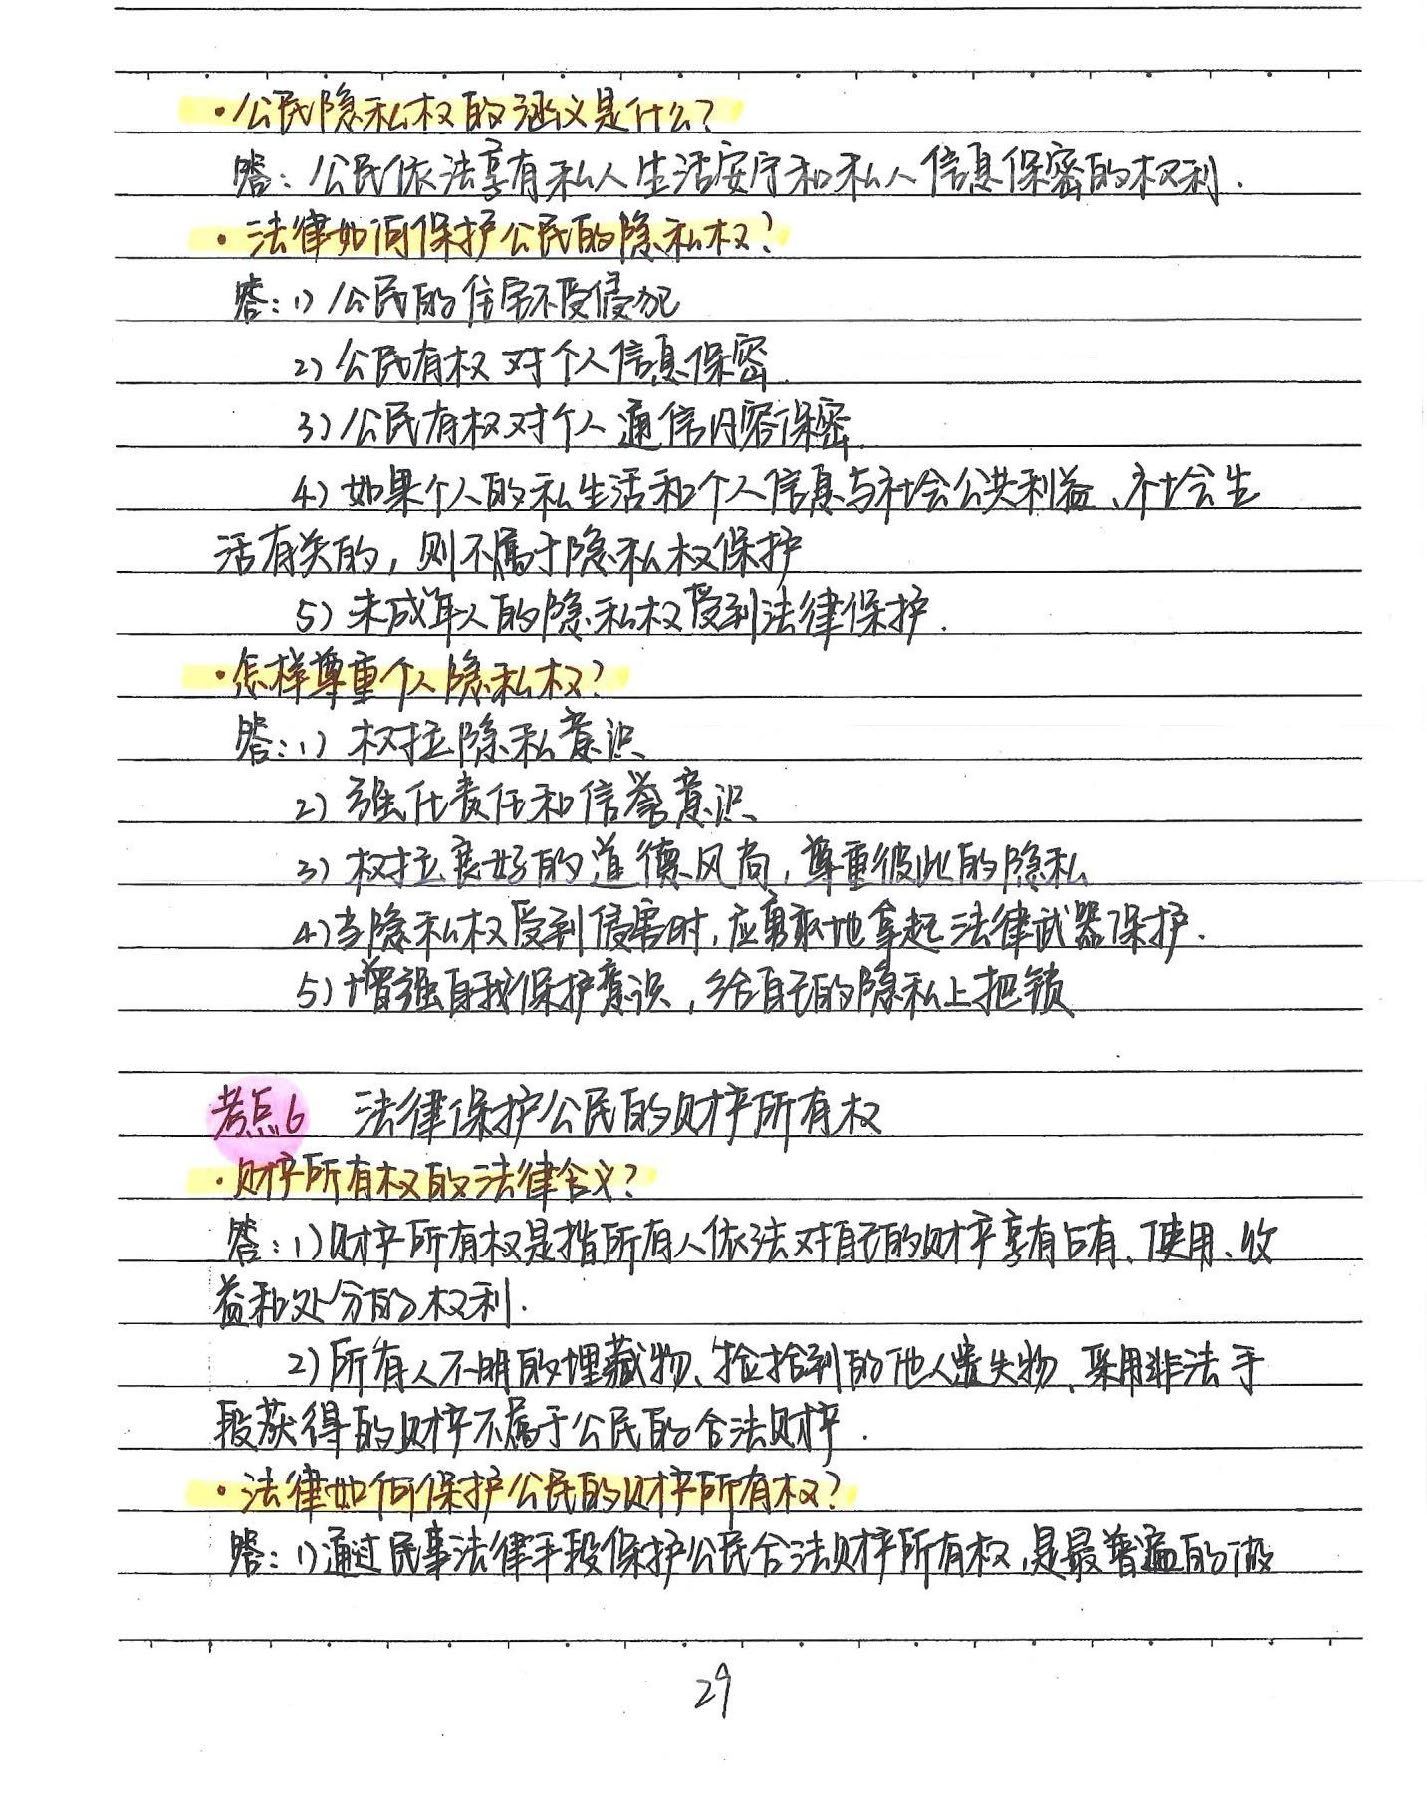 ·公民隐私权的涵义是什么?
答:公民依法享有私人生活安宁和私人信息保密的权利.
·法律如何保护公民的隐私权?
答:1)公民的住宅不受侵犯
2)公民有权对个人信息保密.
3)公民有权对个人通信内容保密.
4)如果个人的私生活和个人信息与社会公共利益、社会生
活有关的,则不属于隐私权保护
5)未成年人的隐私权受到法律保护.
·怎样尊重个人隐私权?
答:1)权拉隐私意识
2)强化责任和信誉意识
3)权拉良好的道德风尚,尊重彼此的隐私
4)当隐私权受到侵害时,应勇敢地拿起法律武器保护.
5)增强自我保护意识,给自己的隐私上把锁
考点6 法律保护公民的财产所有权
·财产所有权的法律含义?
答:1)财产所有权是指所有人依法对自己的财产享有占有、使用、收
益和处分的权利.
2)所有人不明的埋藏物、捡拾到的他人遗失物、采用非法手
段获得的财产不属于公民的合法财产.
·法律如何保护公民的财产所有权?
答:1)通过民事法律手段保护公民合法财产所有权,是最普遍的做
29